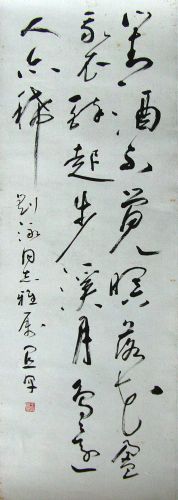 对酒不觉暝落花盈
我衣醉起步溪月鸟还
人亦稀
刘泳同志雅属